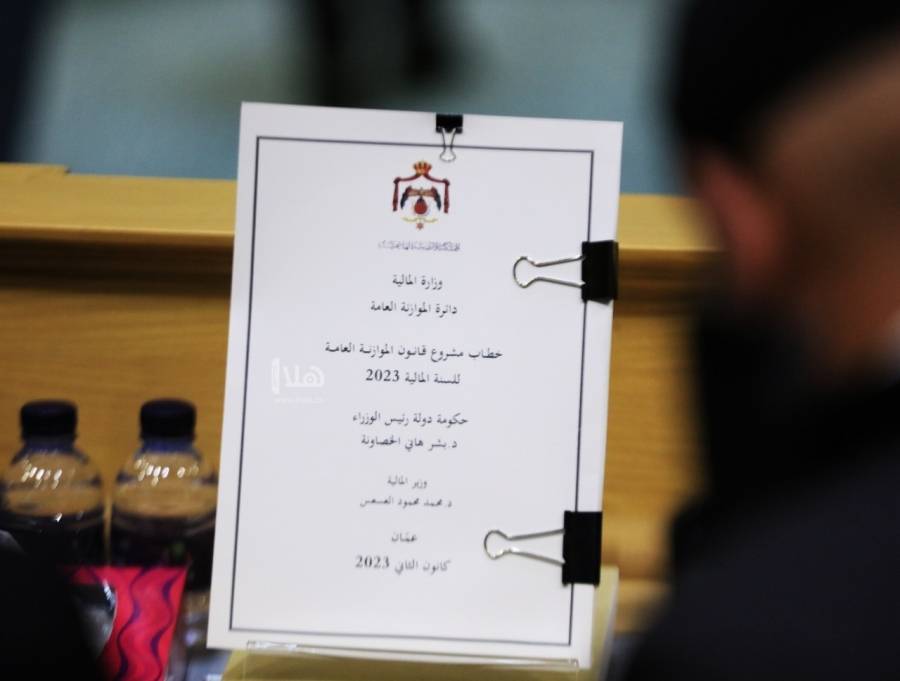 المملكة الأردنية الهاشمية
وزارة المالية
دائرة الموازنة العامة
خطاب مشروع قانون الموازنة العامة
للسنة المالية 2023
هلا
حكومة دولة رئيس الوزراء
د.بشر هاني الخصاونة
وزير المالية
د.محمد محمود العسعس
عمّان
كانون الثاني 2023